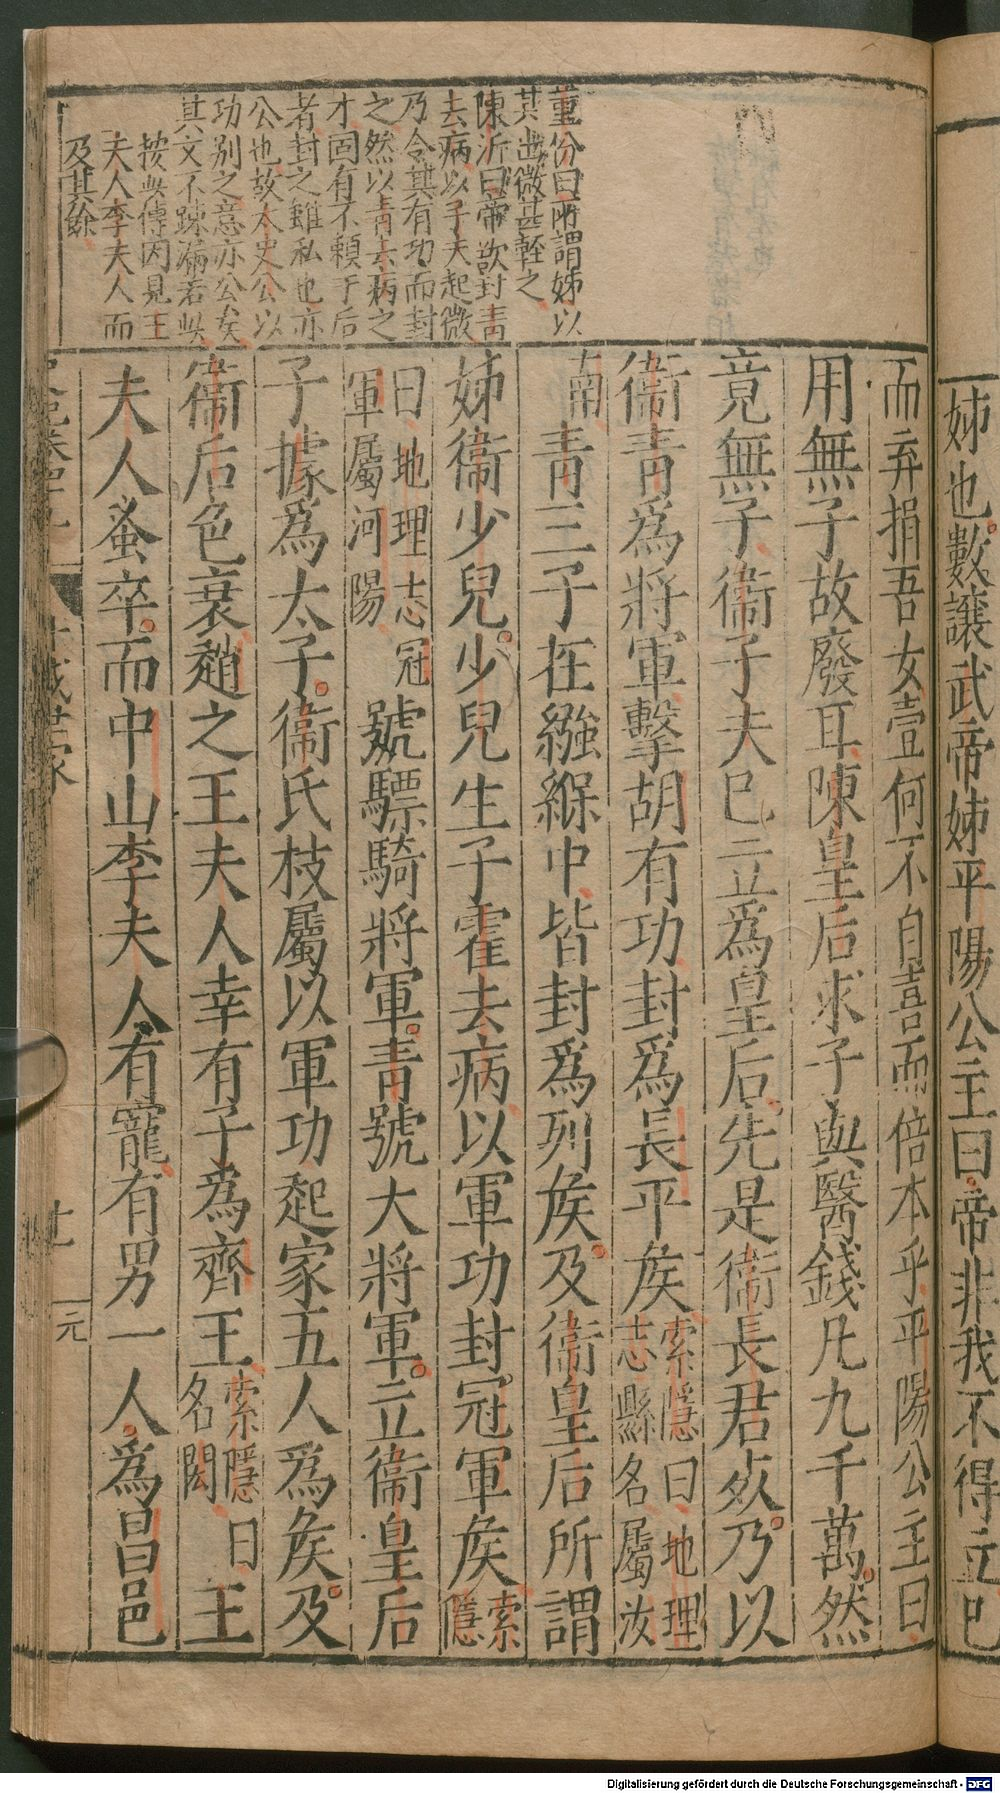 姊也數讓武帝姊平陽公主曰帝非我不得立已
而弃捐吾女壹何不自喜而倍本乎平陽公主曰
用無子故廢耳陳皇后求子與醫錢凡九千萬然
竟無子衞子夫已立爲皇后先是衞長君死乃以
衞青爲將軍擊胡有功封爲長平矦索隱曰地理志縣名屬汝
南青三子在繈緥中皆封爲列矦及衞皇后所謂
姊衞少兒少兒生子霍去病以軍功封冠軍矦索隱
曰地理志冠軍屬河陽號驃騎將軍青號大將軍立衞皇后
子據爲太子衞氏枝屬以軍功起家五人爲矦及
衞后色衰趙之王夫人幸有子爲齊王索隱曰王名閎
夫人蚤卒而中山李夫人有寵有男一人爲昌邑
董份曰所謂姊以
其出微甚輕之
陳沂曰帝欲封青
去病以子夫起微
乃令其有功而封
之然以青去病之
才固有不賴于后
者封之雖私也亦
公也故太史公以
功別之意亦公矣
其文不踈漏若此
按此傳因見王
夫人李夫人而
及其餘
外戚世家
廿一
元
Digitalisierung gefördert durch die Deutsche Forschungsgemeinschaft - DFG